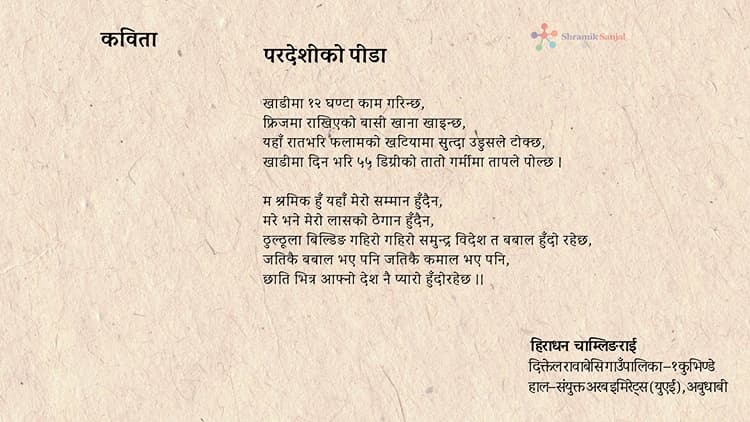 कविता
Shramik Sanjal
परदेशीको पीडा
खाडीमा १२ घण्टा काम गरिन्छ,
फ्रिजमा राखिएको बासी खाना खाइन्छ,
यहाँ रातभरि फलामको खटियामा सुत्दा उडुसले टोक्छ,
खाडीमा दिन भरि ५५ डिग्रीको तातो गर्मीमा तापले पोल्छ ।
म श्रमिक हुँ यहाँ मेरो सम्मान हुँदैन,
मरे भने मेरो लासको ठेगान हुँदैन,
ठुल्ठूला बिल्डिङ गहिरो गहिरो समुन्द्र विदेश त बबाल हुँदो रहेछ,
जतिकै बबाल भए पनि जतिकै कमाल भए पनि,
छाति भित्र आफ्नो देश नै प्यारो हुँदोरहेछ ।।
हिराधन चाम्लिङराई
दिक्तेल रावाबेसि गाउँपालिका–१ कुभिण्डे
हाल–संयुक्त अरब इमिरेट्स (युएई), अबुधाबी